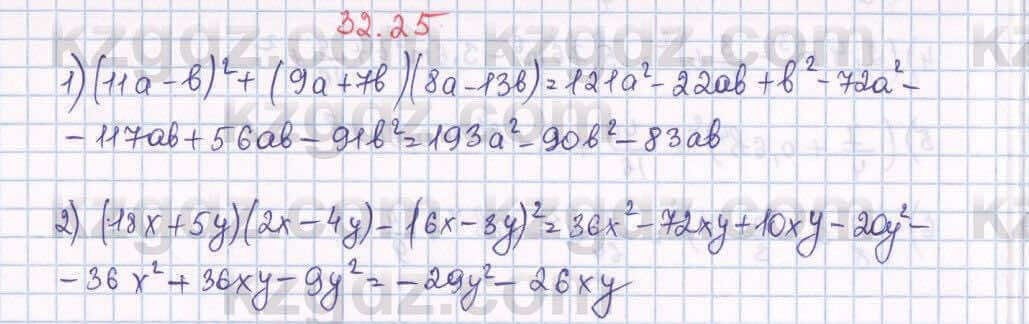 32.25
1) (11a - b)² + (9a + 7b)(8a - 13b) = 121a² - 22ab + b² - 72a² -
- 117ab + 56ab - 91b² = 193a² - 90b² - 83ab
2) (18x + 5y)(2x - 4y) - (6x - 3y)² = 36x² - 72xy + 10xy - 20y² -
- 36x² + 36xy - 9y² = - 29y² - 26xy
kzgdz.com